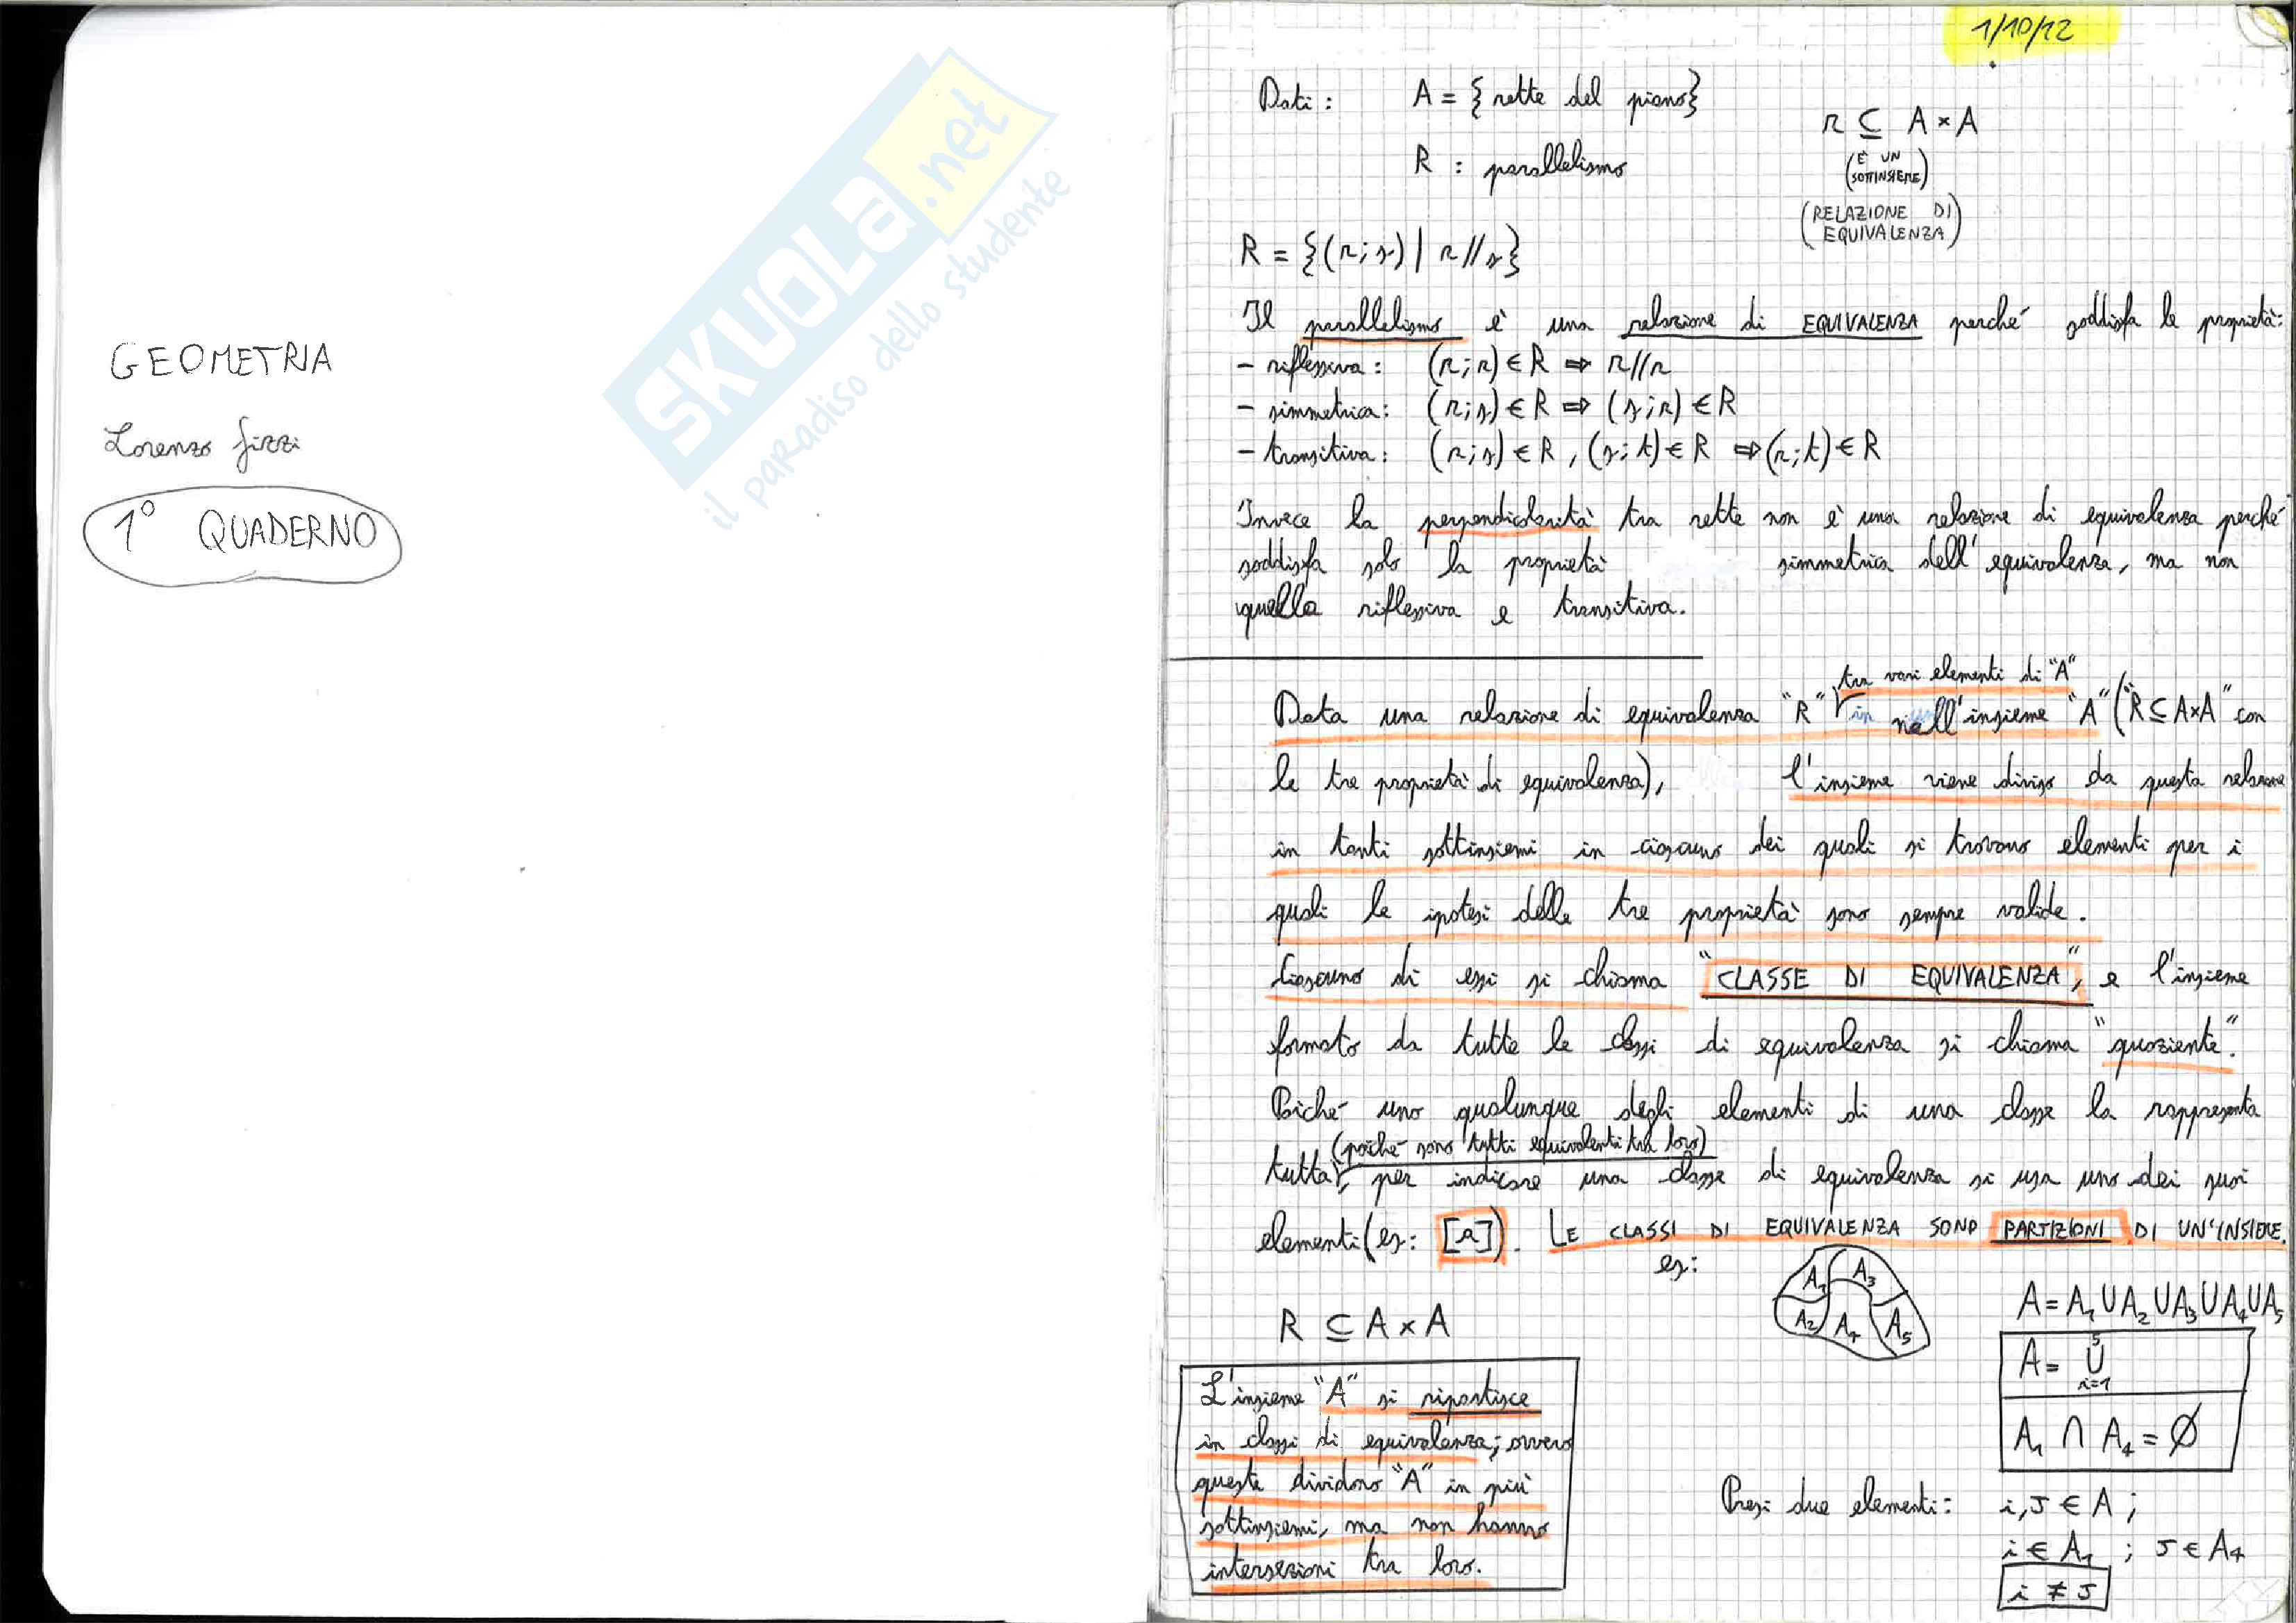 GEOMETRIA
Lorenzo Fizzi
1° QUADERNO
SKUOLA.net
il paradiso dello studente
1/10/12
Dati: A = {rette del piano}
r ⊆ A×A
R : parallelismo
(È UN SOTTINSIEME)
(RELAZIONE DI EQUIVALENZA)
R = {(r;s) | r//s}
Il parallelismo è una relazione di EQUIVALENZA perché soddisfa le proprietà:
- riflessiva: (r;r) ∈ R ⇒ r//r
- simmetrica: (r;s) ∈ R ⇒ (s;r) ∈ R
- transitiva: (r;s) ∈ R, (s;t) ∈ R ⇒ (r;t) ∈ R
Invece la perpendicolarità tra rette non è una relazione di equivalenza perché
soddisfa solo la proprietà simmetrica dell'equivalenza, ma non
quella riflessiva e transitiva.
tra vari elementi di "A"
Data una relazione di equivalenza "R" in nell'insieme "A" ("R ⊆ A×A" con
le tre proprietà di equivalenza), l'insieme viene diviso da questa relazione
in tanti sottinsiemi in ciascuno dei quali si trovano elementi per i
quali le ipotesi delle tre proprietà sono sempre valide.
Ciascuno di essi si chiama "CLASSE DI EQUIVALENZA", e l'insieme
formato da tutte le classi di equivalenza si chiama "quoziente".
Poiché uno qualunque degli elementi di una classe la rappresenta
(poiché sono tutti equivalenti tra loro)
tutta, per indicare una classe di equivalenza si usa uno dei suoi
elementi (es: [a]). LE CLASSI DI EQUIVALENZA SONO PARTIZIONI DI UN'INSIEME.
es:
A₁ A₃
A₂ A₄ A₅
A = A₁ ∪ A₂ ∪ A₃ ∪ A₄ ∪ A₅
R ⊆ A × A
5
A = ∪
i=1
A₁ ∩ A₄ = Ø
L'insieme "A" si ripartisce
in classi di equivalenza; ovvero
queste dividono "A" in più
sottinsiemi, ma non hanno
intersezioni tra loro.
Presi due elementi: i, J ∈ A ;
i ∈ A₁ ; J ∈ A₄
i ≠ J